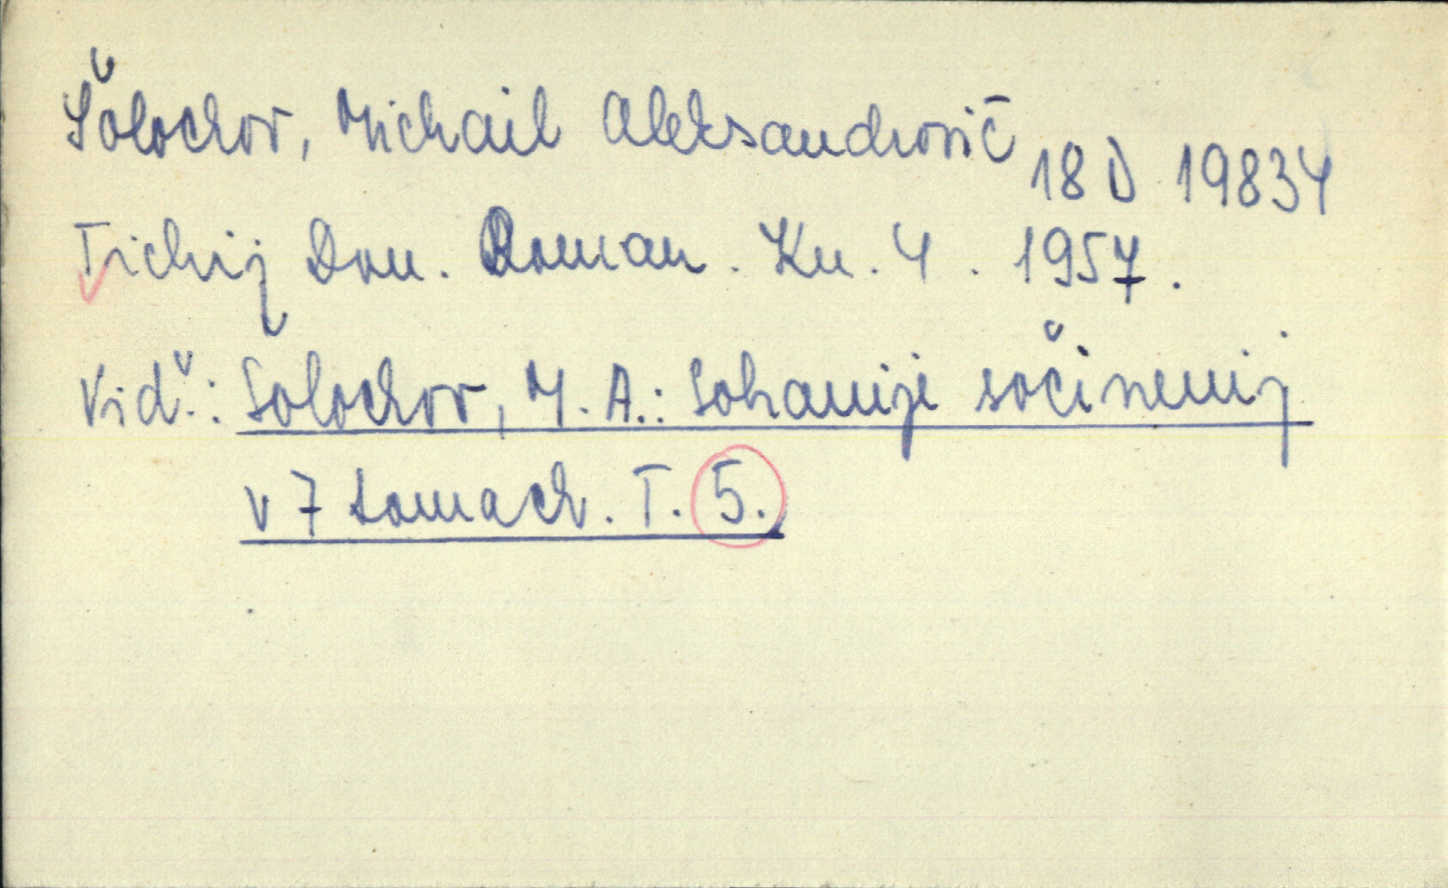 Šolochov, Michail Aleksandrovič
18 D 19834
Tichij Don. Roman. Kn. 4. 1957.
Viď.: Šolochov, M. A.: Sobranije sočinenij
v 7 tomach. T. 5.